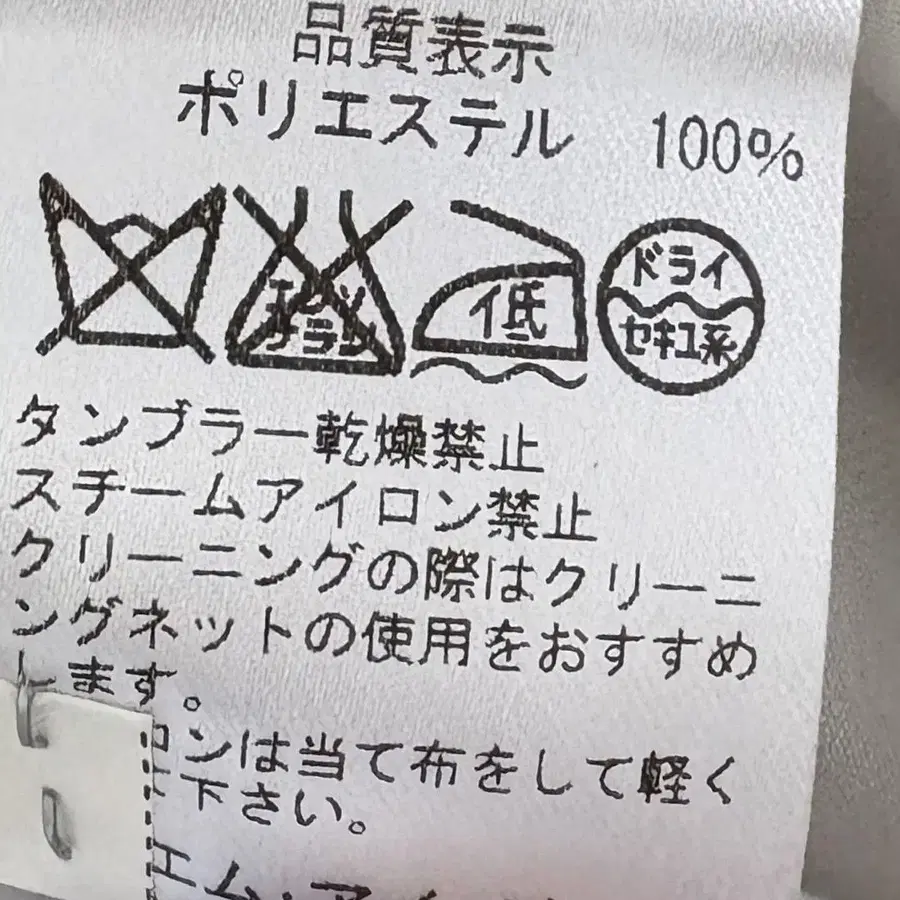 品質表示
ポリエステル 100%
エンソ
サラシ
低
ドライ
セキユ系
タンブラー乾燥禁止
スチームアイロン禁止
クリーニングの際はクリーニ
ングネットの使用をおすすめ
します。
ロンは当て布をして軽く
下さい。
エム・アイ